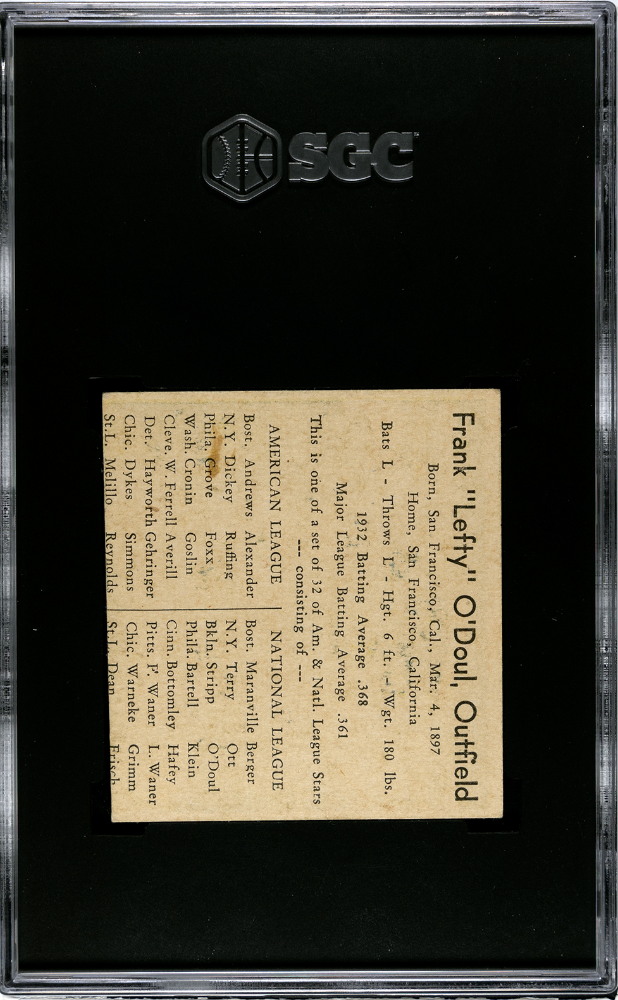 SGC
Frank "Lefty" O'Doul, Outfield
Born, San Francisco, Cal., Mar. 4, 1897
Home, San Francisco, California
Bats L - Throws L - Hgt. 6 ft. - Wgt. 180 lbs.
1932 Batting Average .368
Major League Batting Average .361
This is one of a set of 32 of Am. & Natl. League Stars
--- consisting of ---
AMERICAN LEAGUE NATIONAL LEAGUE
Bost. Andrews Alexander Bost. Maranville Berger
N.Y. Dickey Ruffing N.Y. Terry Ott
Phila. Grove Foxx Bkln. Stripp O'Doul
Wash. Cronin Goslin Phila. Bartell Klein
Cleve. W. Ferrell Averill Cinn. Bottomley Hafey
Det. Hayworth Gehringer Pitts. P. Waner L. Waner
Chic. Dykes Simmons Chic. Warneke Grimm
St.L. Melillo Reynolds St.L. Dean Frisch